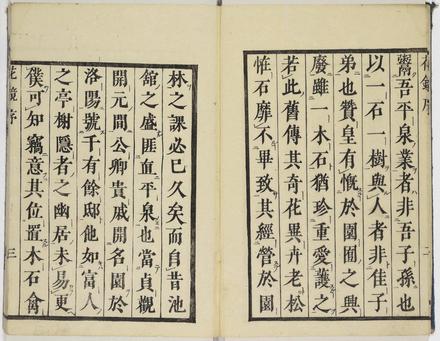 花鏡序
鬻吾平泉業者非吾子孫也
以一石一樹與人者非佳子
弟也贊皇有慨於園囿之興
廢雖一木石猶珍重愛護之
若此舊傳其奇花異卉老松
恠石靡不畢致其經營於園
林之課必已久矣而自昔池
舘之盛匪直平泉也當貞觀
開元間公卿貴戚開名園於
洛陽號千有餘邸他如富人
之亭榭隱者之幽居未易更
僕可知竊意其位置木石禽
花鏡序 三